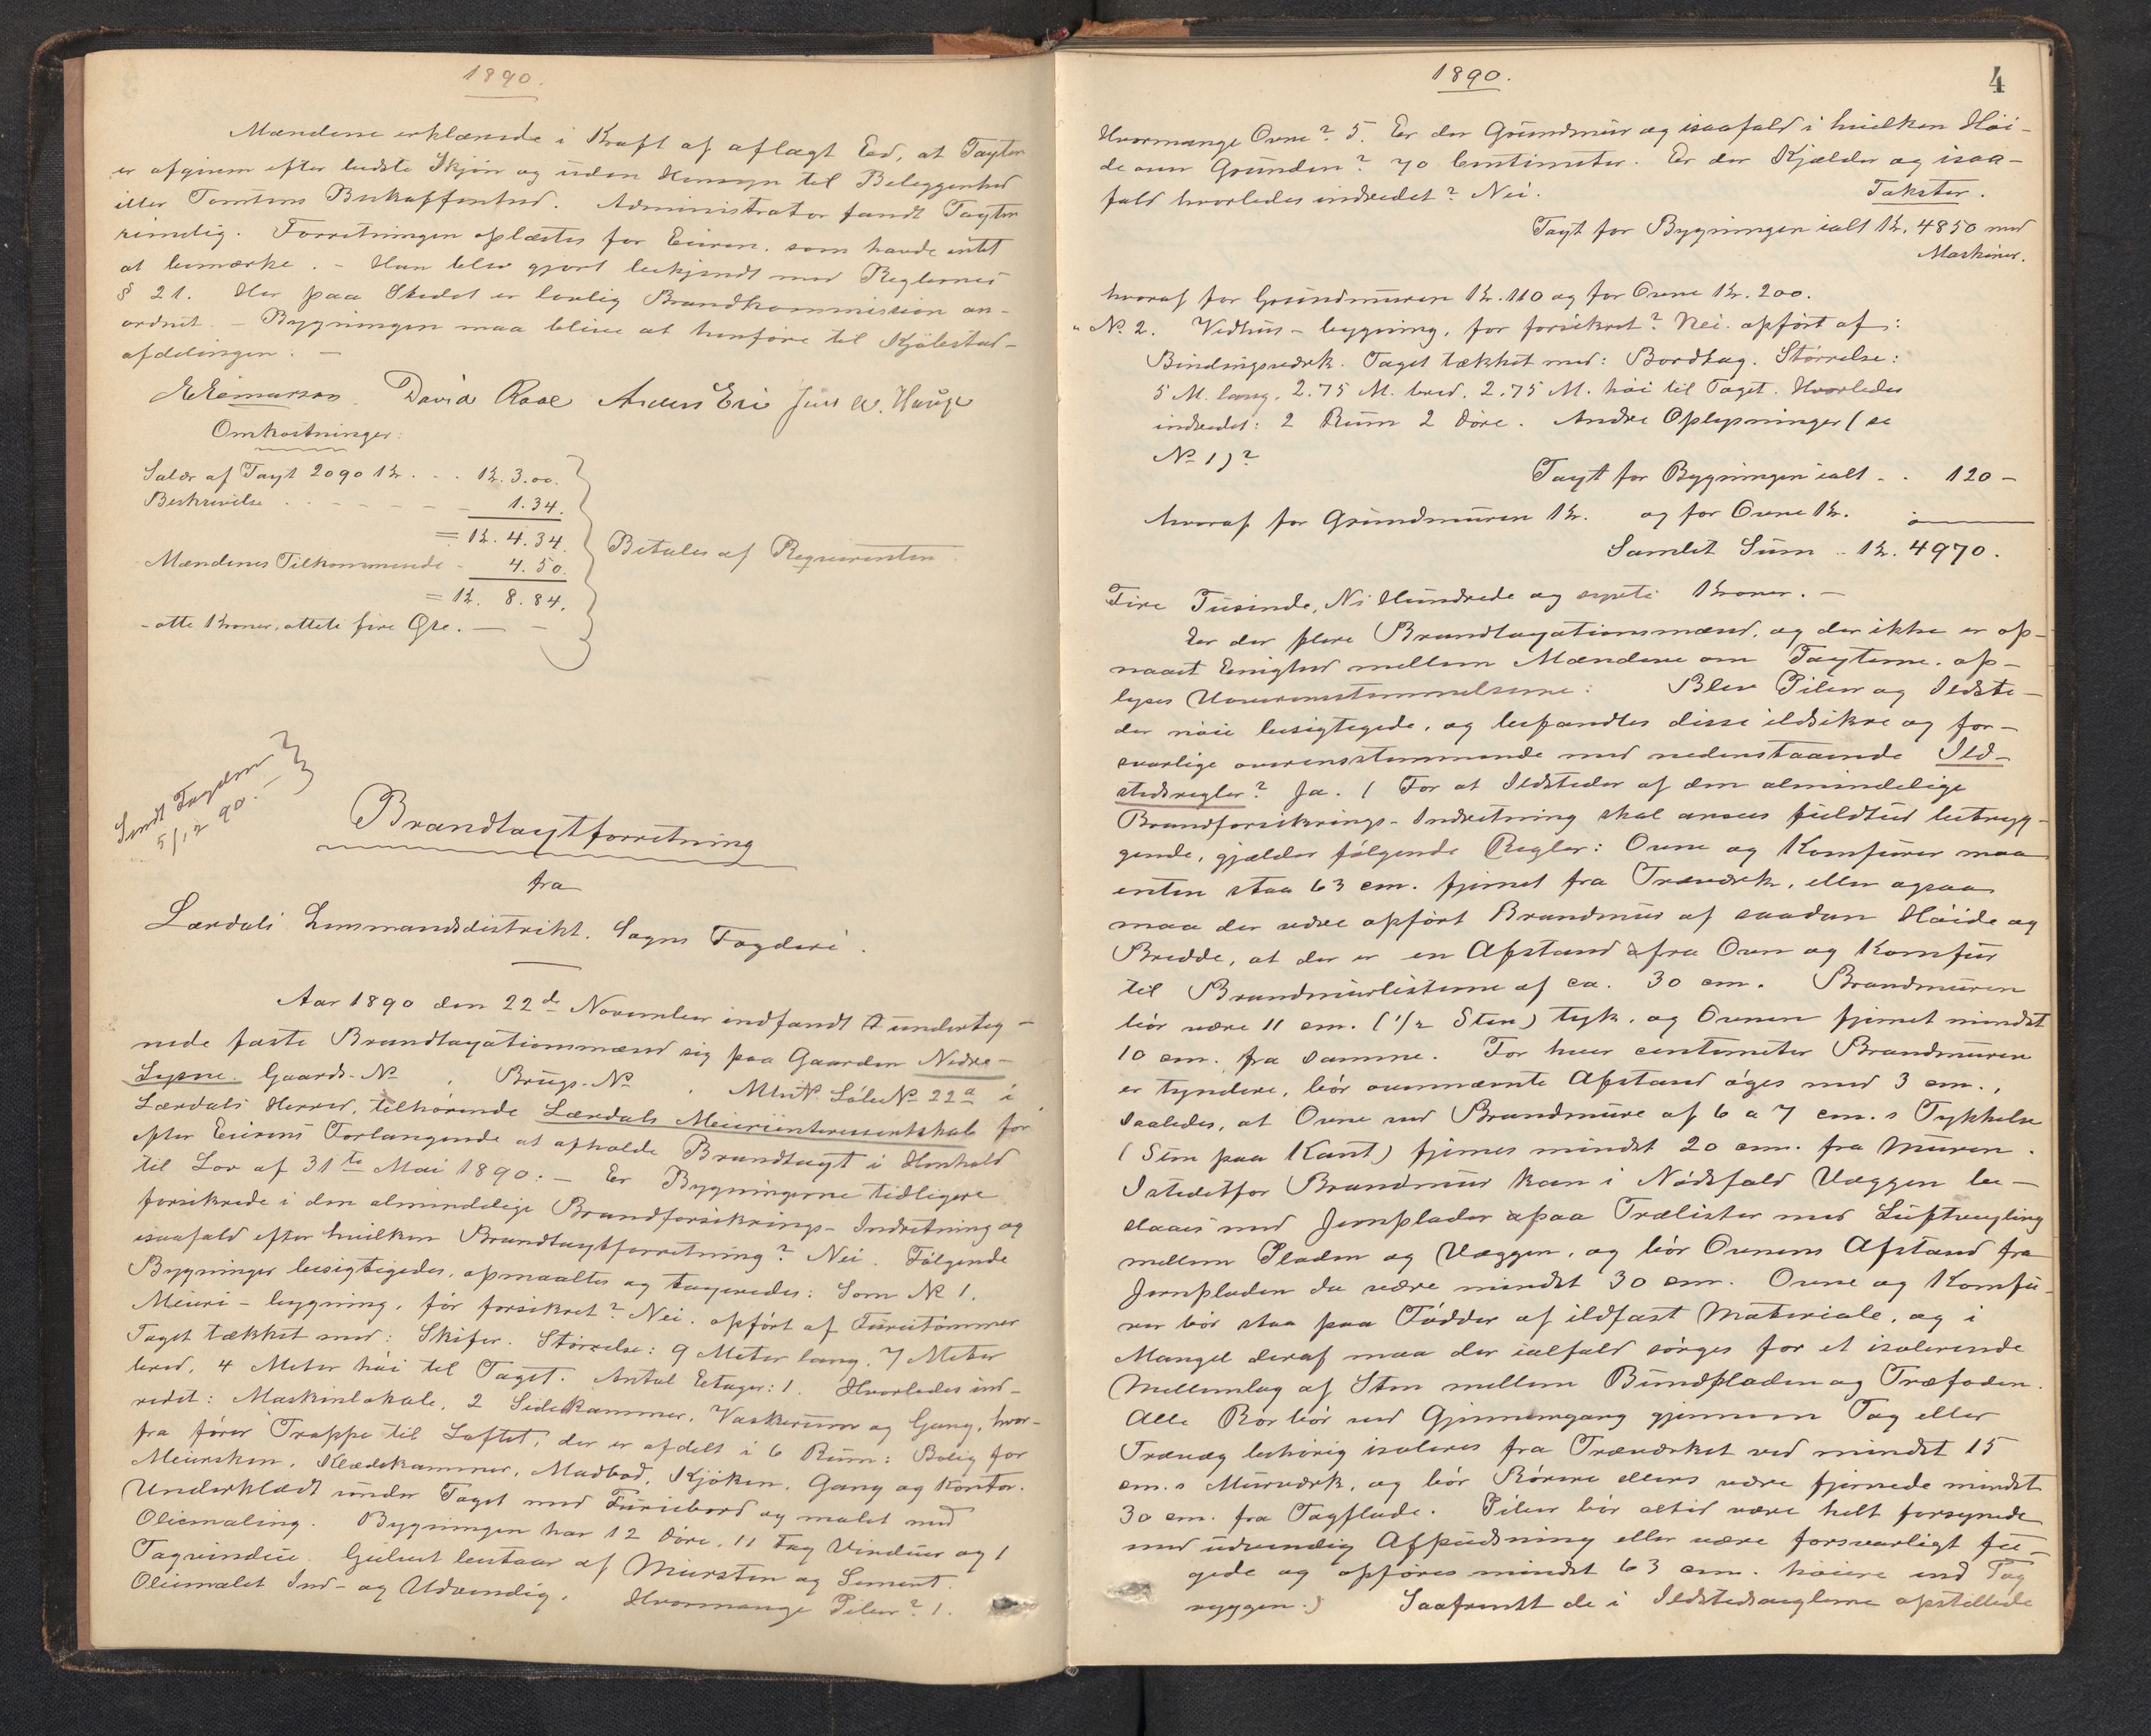 1890.
Mændene erklærede i Kraft af aflagt Eed, at Taxten
er afgiven efter bedste Skjøn og uden Hensyn til Beleggenhed
eller Tomtens Beskaffenhed. Administrator fandt Taxten
rimelig. Forretningen oplæstes for Eieren, som havde intet
at bemærke. – Han blev gjort bekjendt med Reglernes
§ 21. Her paa Stedet er lovlig Brandkommission an-
ordnet. – Bygningen maa blive at henføre til Kjøbstad-
afdelingen. –
David Anders Eri Jens A. Hauge
Omkostninger:
Salær af Taxt 2090 Kr. . . Kr. 3.00.
Beskrivelse . . - - - - - 1.34.
= Kr. 4.34.
Mændenes Tilkommende - 4.50.
= Kr. 8.84.
- otte Kroner, ottete fire Øre. — –
Betales af Reqvirenten
Sendt Fogden
5/12 90. –
Brandtaxtforretning
fra
Lærdals Lensmandsdistrikt. Sogns Fogderi.
Aar 1890 den 22de November indfandt underteg-
nede faste Brandtaxationsmænd sig paa Gaarden Nedre-
Lysne. Gaards-No , Brugs-No , Mtr No Løbe No 22a i
Lærdals Herred, tilhørende Lærdals Meieriinteressentskab for
efter Eierens Forlangende at afholde Brandtaxt i Henhold
til Lov af 31te Mai 1890. – Er Bygningerne tidligere
forsikrede i den almindelige Brandforsikrings-Indretning og
isaafald efter hvilken Brandtaxtforretning? Nei. Følgende
Bygninger besigtigedes, opmaaltes og taxeredes: Som No 1.
Meieri-bygning, før forsikret? Nei. opført af Furutømmer
Taget tækket med: Skifer. Størrelse: 9 Meter lang. 7 Meter
bred, 4 Meter høi til Taget. Antal Etager: 1. Hvorledes ind-
redet: Maskinlokale, 2 Sidekammer, Vaskerum og Gang, hvor-
fra fører Trappe til Loftet, der er afdelt i 6 Rum: Bolig for
Meiersken, Klædekammer, Madbod, Kjøken, Gang og Kontor.
Underklædt under Taget med Furuebord og malet med
Oliemaling. Bygningen har 12 Døre, 11 Fag Vinduer og 1
Tagvindue. Gulvet bestaar af Mursten og Sement.
Oliemalet Ind- og Udvendig. Hvormange Piber? 1.
1890.
4
Hvormange Ovne? 5. Er der Grundmur og isaafald i hvilken Høi-
de over Grunden? 70 Centimeter. Er der Kjælder og isaa-
fald hvorledes indredet? Nei.
Takster.
Taxt for Bygningen ialt Kr. 4850 med
Maskiner.
hvoraf for Grundmuren Kr. 110 og for Ovne Kr. 200.
" No 2. Vedhus-bygning, før forsikret? Nei. opført af:
Bindingsværk. Taget tækket med: Bordtag. Størrelse:
5 M. lang, 2.75 M. bred. 2.75 M. høi til Taget. Hvorledes
indredet: 2 Rum 2 Døre. Andre Oplysninger (se
No 1)?
Taxt for Bygningen ialt . . 120 –
hvoraf for Grundmuren Kr. og for Ovne Kr.
Samlet Sum .. Kr. 4970.
Fire Tusinde, Ni Hundrede og sytti Kroner. –
Er der flere Brandtaxationsmænd, og der ikke er op-
naaet Enighed mellem Mændene om Taxterne, op-
lyses Uoverensstemmelserne: Blev Piber og Ildste-
der nøie besigtigede, og befandtes disse ildsikre og for-
svarlige overensstemmende med nedenstaaende Ild-
stedsregler? Ja. ( For at Ildsteder af den almindelige
Brandforsikrings-Indretning skal ansees fuldtud betryg-
gende, gjælder følgende Regler: Ovne og Komfurer maa
enten staa 63 cm. fjernet fra Træværk, eller ogsaa
maa der være opført Brandmur af saadan Høide og
Bredde, at der er en Afstand fra Ovn og Komfur
til Brandmurlisterne af ca. 30 cm. Brandmuren
bør være 11 cm. (1/2 Sten) tyk, og Ovnen fjernet mindst
10 cm. fra samme. For hver centimeter Brandmuren
er tyndere, bør ovennævnte Afstand øges med 3 cm.,
saaledes, at Ovne ved Brandmure af 6 a 7 cm.s Tykkelse
(Sten paa Kant) fjernes mindst 20 cm. fra Muren.
Istedetfor Brandmur kan i Nødsfald Væggen be-
slaaes med Jernplader paa Trælister med Luftvexling
mellem Pladen og Væggen, og bør Ovnens Afstand fra
Jernpladen da være mindst 30 cm. Ovne og Komfu-
rer bør staa paa Fødder af ildfast Materiale, og i
Mangel deraf maa der ialfald sørges for et isolerende
Mellemlag af Sten mellem Bundpladen og Træfoden.
Alle Rør bør ved Gjennemgang gjennem Tag eller
Trævæg behørig isoleres fra Træværket ved mindst 15
cm.s Murværk, og bør Rørene ellers være fjernede mindst
30 cm. fra Tagflade. Piber bør altid være helt forsynede
med udvendig Afpudsning eller være forsvarligt fu-
gede og opføres mindst 63 cm. høiere end Tag
ryggen.) Saafremt de i Ildstedsreglerne opstillede